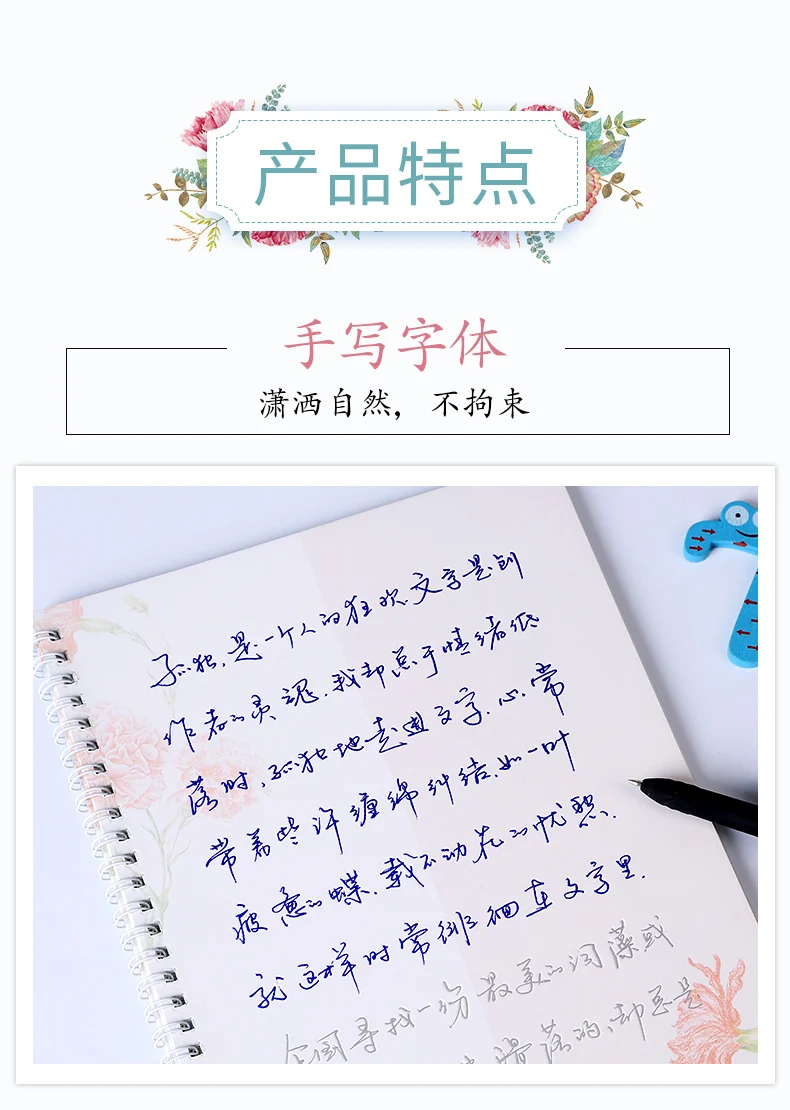 产品特点
手写字体
潇洒自然，不拘束
孤独,是一个人的狂欢.文字是创
作者的灵魂.我却总于情绪低
落时,孤独地走进文字.心,常
带着些许缠绵纠结.如一叶
疲惫的蝶.载不动花的忧愁.
就这样时常徘徊在文字里.
企图寻找一份最美的词藻或
落的,却总是